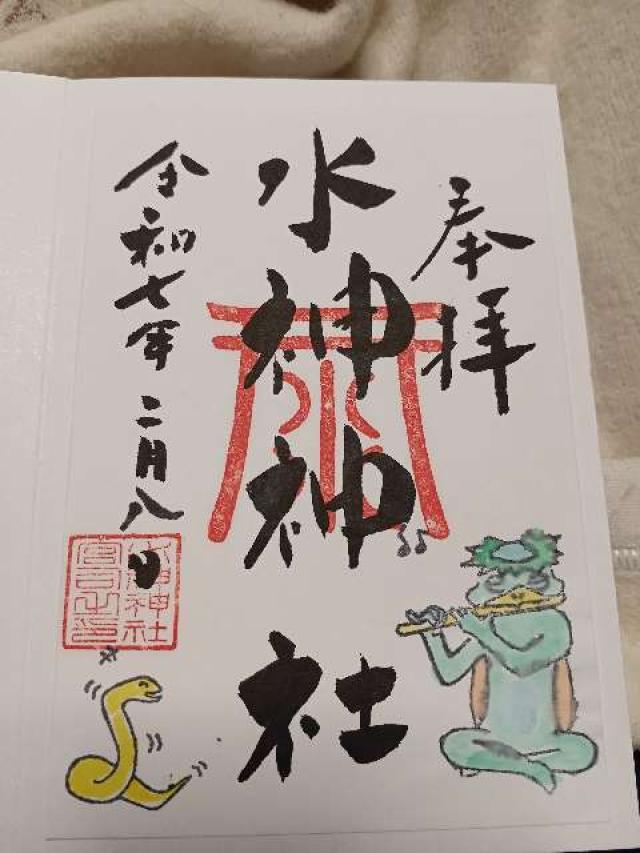 奉拝
水神神社
令和七年二月八日
水神神社
宮司之印